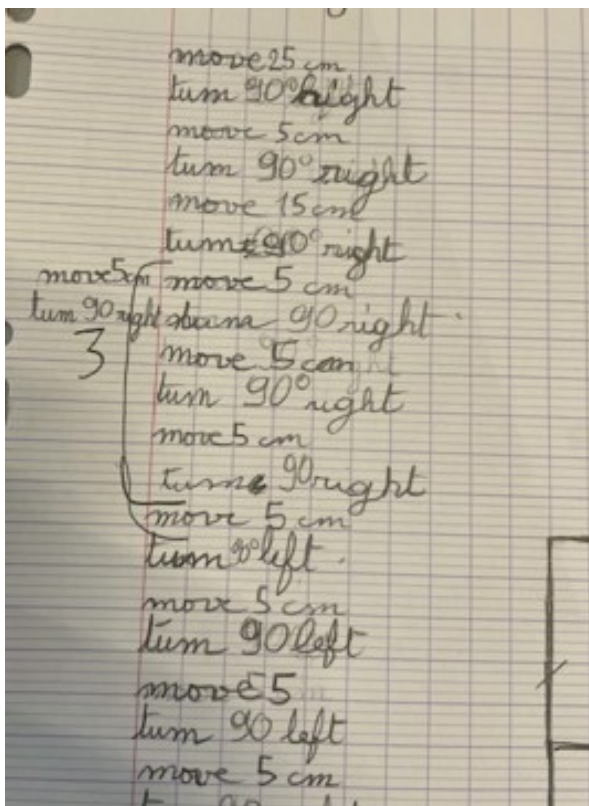 move 25 cm
turn 90° right
move 5cm
turn 90° right
move 15 cm
turn 90° right
move 5cm
move 5 cm
turn 90 right
90 right
3
move 5 cm
turn 90° right
move 5 cm
turn 90 right
move 5 cm
turn 90° left
move 5 cm
turn 90 left
move 5
turn 90 left
move 5 cm